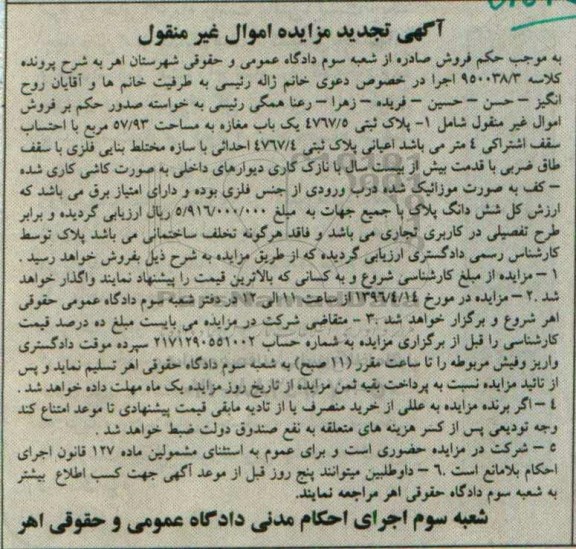 آگهی تجدید مزایده اموال غیر منقول
به موجب حکم فروش صادره از شعبه سوم دادگاه عمومی و حقوقی شهرستان اهر به شرح پرونده
کلاسه ۹۵۰۰۳۸/۳ اجرا در خصوص دعوی خانم ژاله رئیسی به طرفیت خانم ها و آقایان روح
انگیز – حسن – حسین – فریده – زهرا – رعنا همگی رئیسی به خواسته صدور حکم بر فروش
اموال غیر منقول شامل ۱- پلاک ثبتی ۴۷۶۷/۵ یک باب مغازه به مساحت ۵۷/۹۳ مربع با احتساب
سقف اشتراکی ۴ متر می باشد اعیانی پلاک ثبتی ۴۷۶۷/۴ احداثی با سازه مختلط بنایی فلزی با سقف
طاق ضربی با قدمت بیش از بیست سال با نازک کاری دیوارهای داخلی به صورت کاشی کاری شده
– کف به صورت موزائیک شده درب ورودی از جنس فلزی بوده و دارای امتیاز برق می باشد که
ارزش کل شش دانگ پلاک با جمیع جهات به مبلغ ۵/۹۱۶/۰۰۰/۰۰۰ ریال ارزیابی گردیده و برابر
طرح تفصیلی در کاربری تجاری می باشد و فاقد هرگونه تخلف ساختمانی می باشد پلاک توسط
کارشناس رسمی دادگستری ارزیابی گردیده که از طریق مزایده به شرح ذیل بفروش خواهد رسید .
۱ – مزایده از مبلغ کارشناسی شروع و به کسانی که بالاترین قیمت را پیشنهاد نمایند واگذار خواهد
شد .۲ – مزایده در مورخ ۱۳۹۶/۴/۱۴ از ساعت ۱۱ الی ۱۲ در دفتر شعبه سوم دادگاه عمومی حقوقی
اهر شروع و برگزار خواهد شد .۳ – متقاضی شرکت در مزایده می بایست مبلغ ده درصد قیمت
کارشناسی را قبل از برگزاری مزایده به شماره حساب ۲۱۷۱۲۹۰۵۵۱۰۰۲ سپرده موقت دادگستری
واریز وفیش مربوطه را تا ساعت مقرر (۱۱ صبح) به شعبه سوم دادگاه حقوقی اهر تسلیم نماید و پس
از تائید مزایده نسبت به پرداخت بقیه ثمن مزایده از تاریخ روز مزایده یک ماه مهلت داده خواهد شد .
۴ – اگر برنده مزایده به عللی از خرید منصرف یا از تادیه مابقی قیمت پیشنهادی تا موعد امتناع کند
وجه تودیعی پس از کسر هزینه های متعلقه به نفع صندوق دولت ضبط خواهد شد .
۵ – شرکت در مزایده حضوری است و برای عموم به استثنای مشمولین ماده ۱۲۷ قانون اجرای
احکام بلامانع است .۶ – داوطلبین میتوانند پنج روز قبل از موعد آگهی جهت کسب اطلاع بیشتر
به شعبه سوم دادگاه حقوقی اهر مراجعه نمایند.
شعبه سوم اجرای احکام مدنی دادگاه عمومی و حقوقی اهر